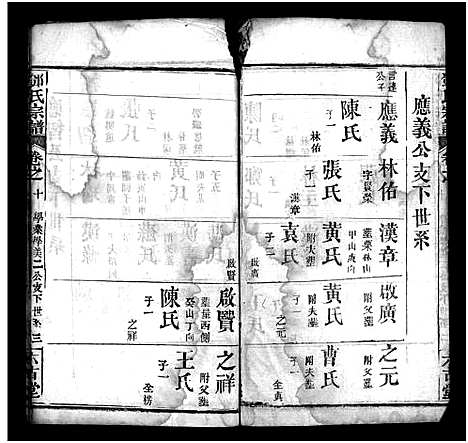 應義公支下世系
言達公子
應義
陳氏
子一
林佑
林佑
字景榮
張氏
子一
漢章
漢章
葬栗林山
甲山庚向
黄氏
附夫塋
袁氏
子二
啟賢
啟廣
黄氏
附夫塋
子一
之元
之元
附父塋
曹氏
附夫塋
子一
全典
啟賢
葬屋西側
癸山丁向
陳氏
子一
之祥
之祥
附父塋
王氏
子一
全榜
鄧氏宗譜
卷之十
學業學美二公支下世系
三
六吉堂